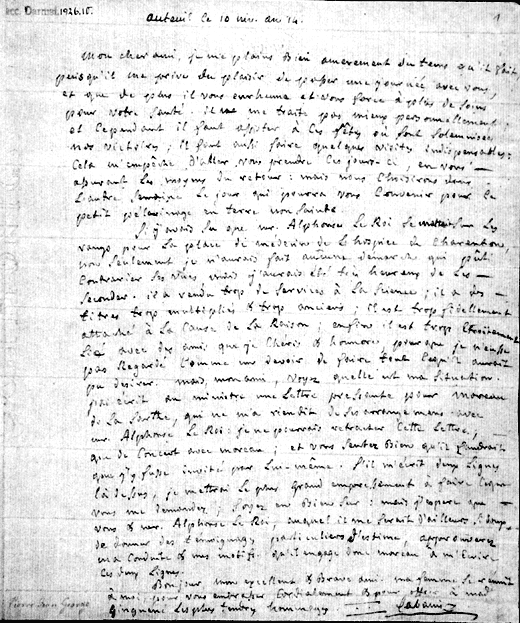 acc. Darmst. 1926.15.
1
auteuil le 10 niv. an 14.
Mon cher ami, je me plains bien amerement du tems qu'il fait
puisqu'il me prive du plaisir de passer une journée avec vous,
et que de plus il vous enrhume et vous force à plus de soins
pour votre santé. il ne me traite pas mieux personnellement
et cependant il faut assister à ces fêtes où sont solennisées
nos victoires; il faut aussi faire quelques visites indispensables:
Cela m'empêche d'aller vous prendre ces jours-ci, en vous
assurant les moyens du retour: mais nous choisirons dans
l'autre semaine le jour qui pourra vous convenir pour le
petit pélerinage en terre non sainte.
Si j'avais su que mr. Alphonse Le Roi se mettait sur les
rangs pour la place de médecin de l'hospice de Charenton,
non seulement je n'aurais fait aucune démarche qui pût
contrarier ses vues mais j'aurais été très heureux de les
seconder. il a rendu trop de services à la science; il a des
titres trop multipliés & trop anciens; il est trop fidellement
attaché à la Cause de la Raison; enfin il est trop étroitement
lié avec des amis que je chéris & honore, pour que je n'eusse
pas regardé comme un devoir de faire tout ce qu'il aurait
pu desirer. mais, mon ami, voyez quelle est ma situation.
j'ai écrit au ministre une lettre pressante pour moreau
de la Sarthe, qui ne m'a rien dit de ses arrangemens avec
mr. Alphonse Le Roi: je ne pourrais retracter cette lettre,
que de concert avec moreau; et vous sentez bien qu'il faudrait
que j'y fusse invité par lui-même. S'il m'écrit deux lignes
là dessus, je mettrai le plus grand empressement à faire ce que
vous me demandez; soyez en bien sûr: mais j'espere que
vous & mr. Alphonse Le Roi, auquel il me serait d'ailleurs si doux
de donner des témoignages particuliers d'estime, approuverez
ma conduite & mes motifs. qu'il engage donc moreau à m'écrire
ces deux lignes.
Bonjour mon excellent & brave ami. ma femme se réunit
à moi pour vous embrasser cordialement & pour offrir à mad.
Ginguené les plus tendres hommages. Cabanis
Pierre Jean George